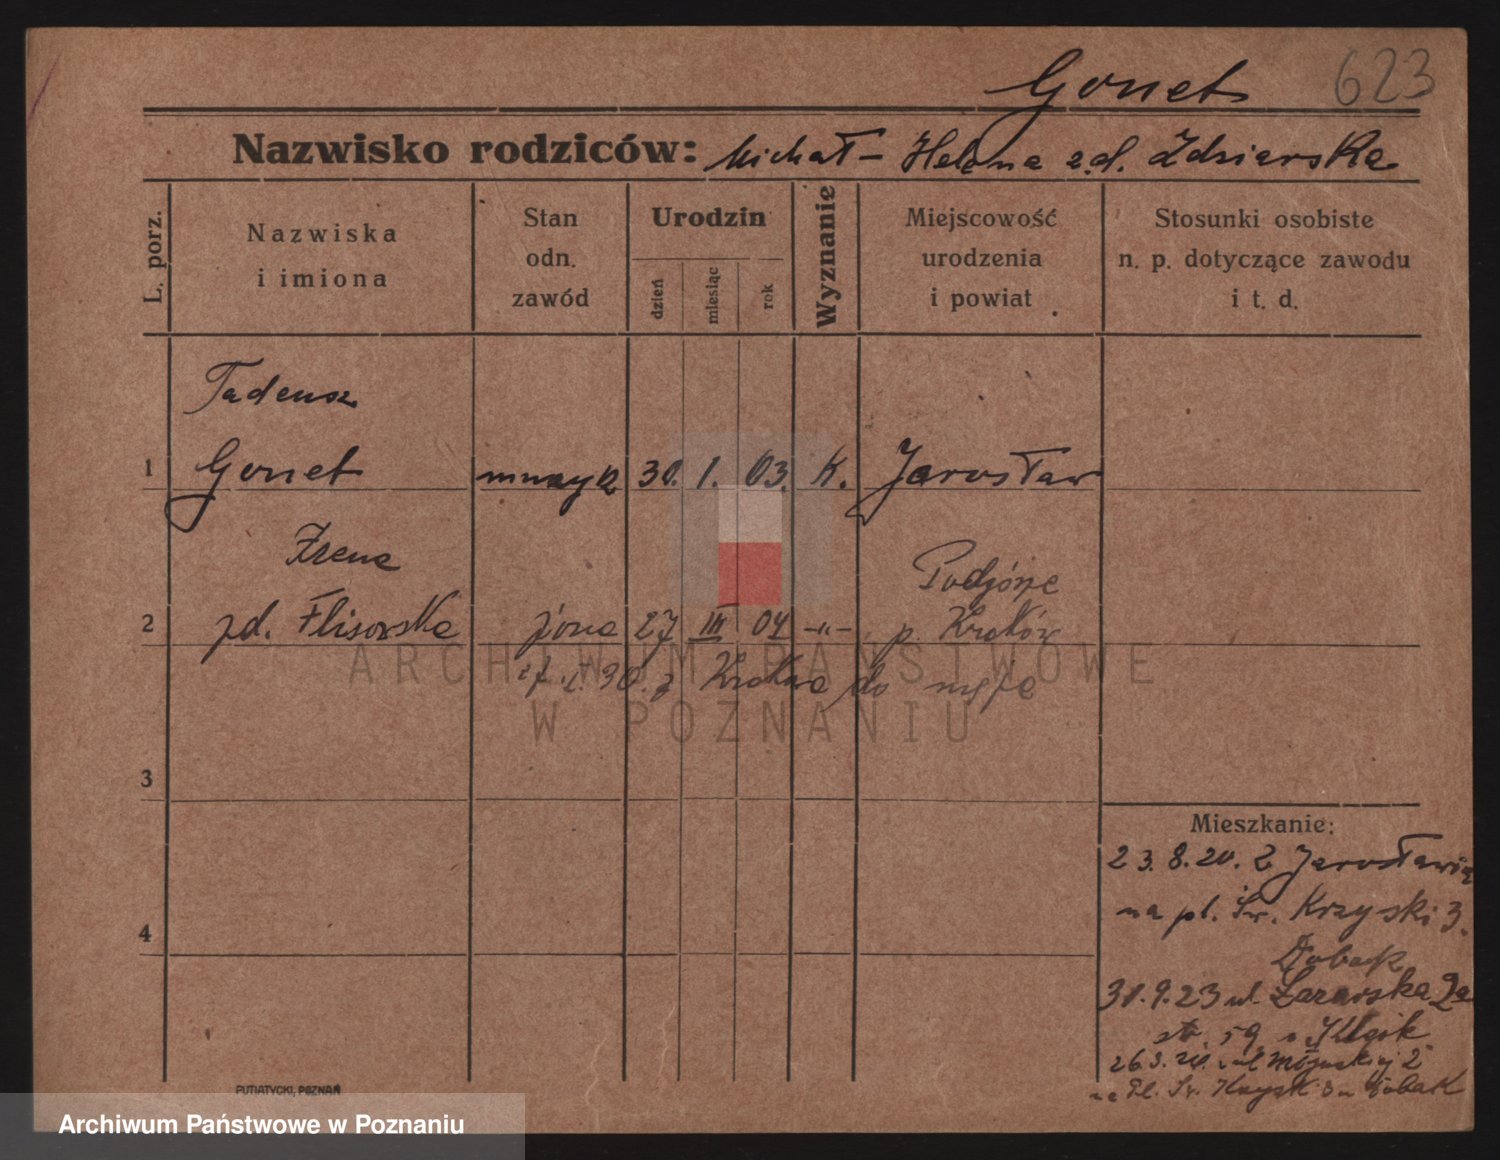 Gonet 623
Nazwisko rodziców: Michał - Helena z.d. Zdziarska
L. porz.
Nazwiska
i imiona
Stan
odn.
zawód
Urodzin
dzień
miesiąc
rok
Wyznanie
Miejscowość
urodzenia
i powiat
Stosunki osobiste
n. p. dotyczące zawodu
i t. d.
Tadeusz
1 Gonet muzyk 30. 1. 03. K. Jarosław
Irena Podgórze
2 zd. Flisowska żona 27 III 04 -"- p. Kraków
30. z Krakowa do męża
ARCHIWUM PAŃSTWOWE
W POZNANIU
3
4
Mieszkanie:
23.8.20. z Jarosławia
na pl. Św. Krzyski 3.
Dobak
31.9.23 ul. Łazarska 2a
59
26.3. ul. 2
na Pl. Św. Krzysk 3 u Dobak
PUTIATYCKI, POZNAŃ
Archiwum Państwowe w Poznaniu